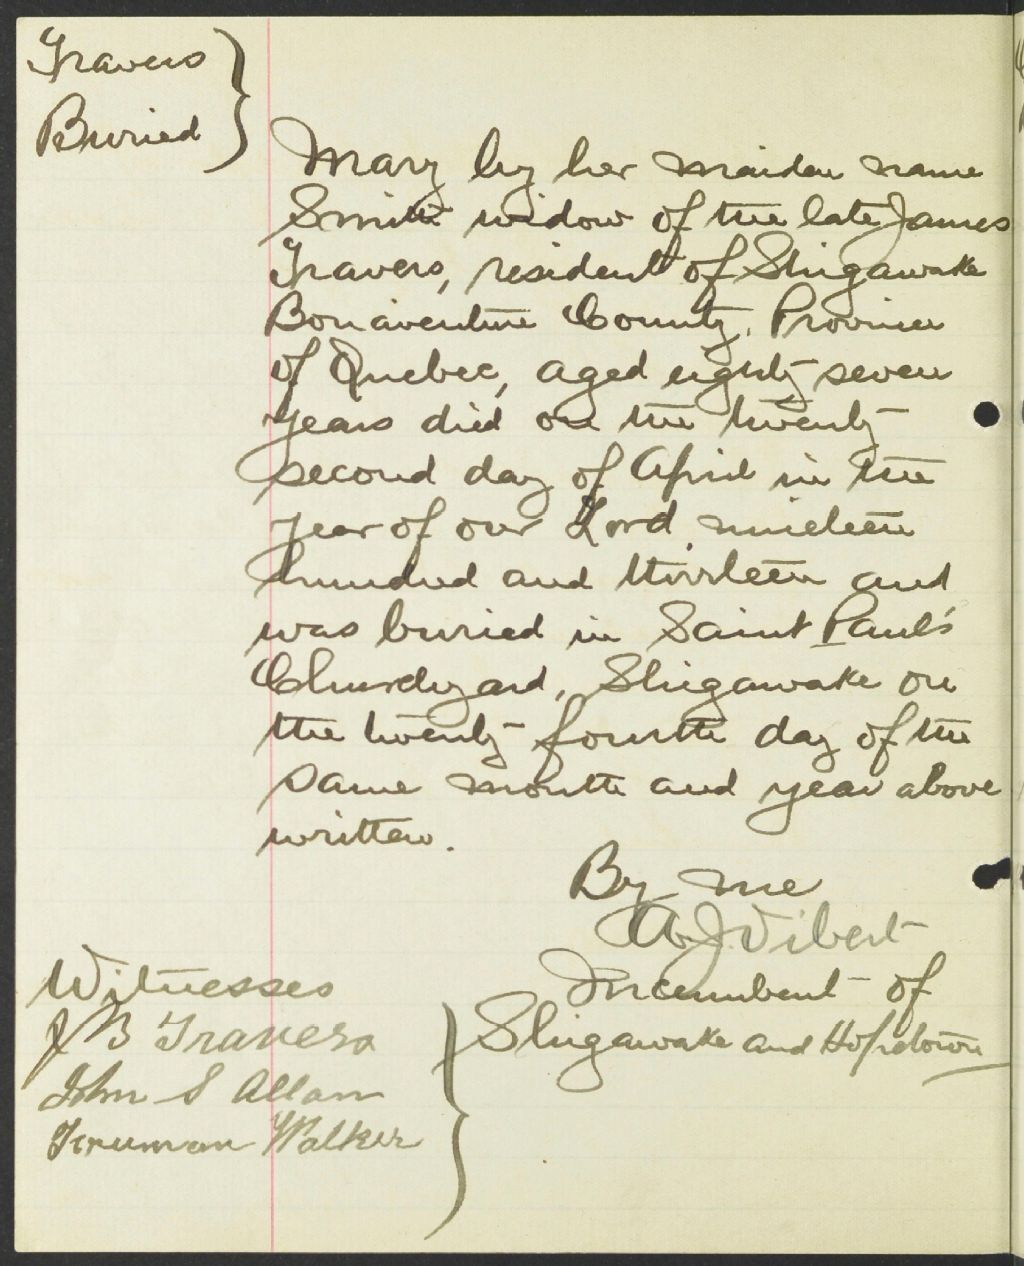 Travers
Buried
Mary by her maiden name
Smith widow of the late James
Travers, resident of Shigawake
Bonaventure County, Province
of Quebec, aged eighty seven
years died on the twenty
second day of April in the
year of our Lord nineteen
hundred and thirteen and
was buried in Saint Paul's
Churchyard, Shigawake on
the twenty fourth day of the
same month and year above
written.
By me
A. J. Vibert
Incumbent of
Shigawake and Hopetown
Witnesses
J B Travers
John S Allam
Truman Walker